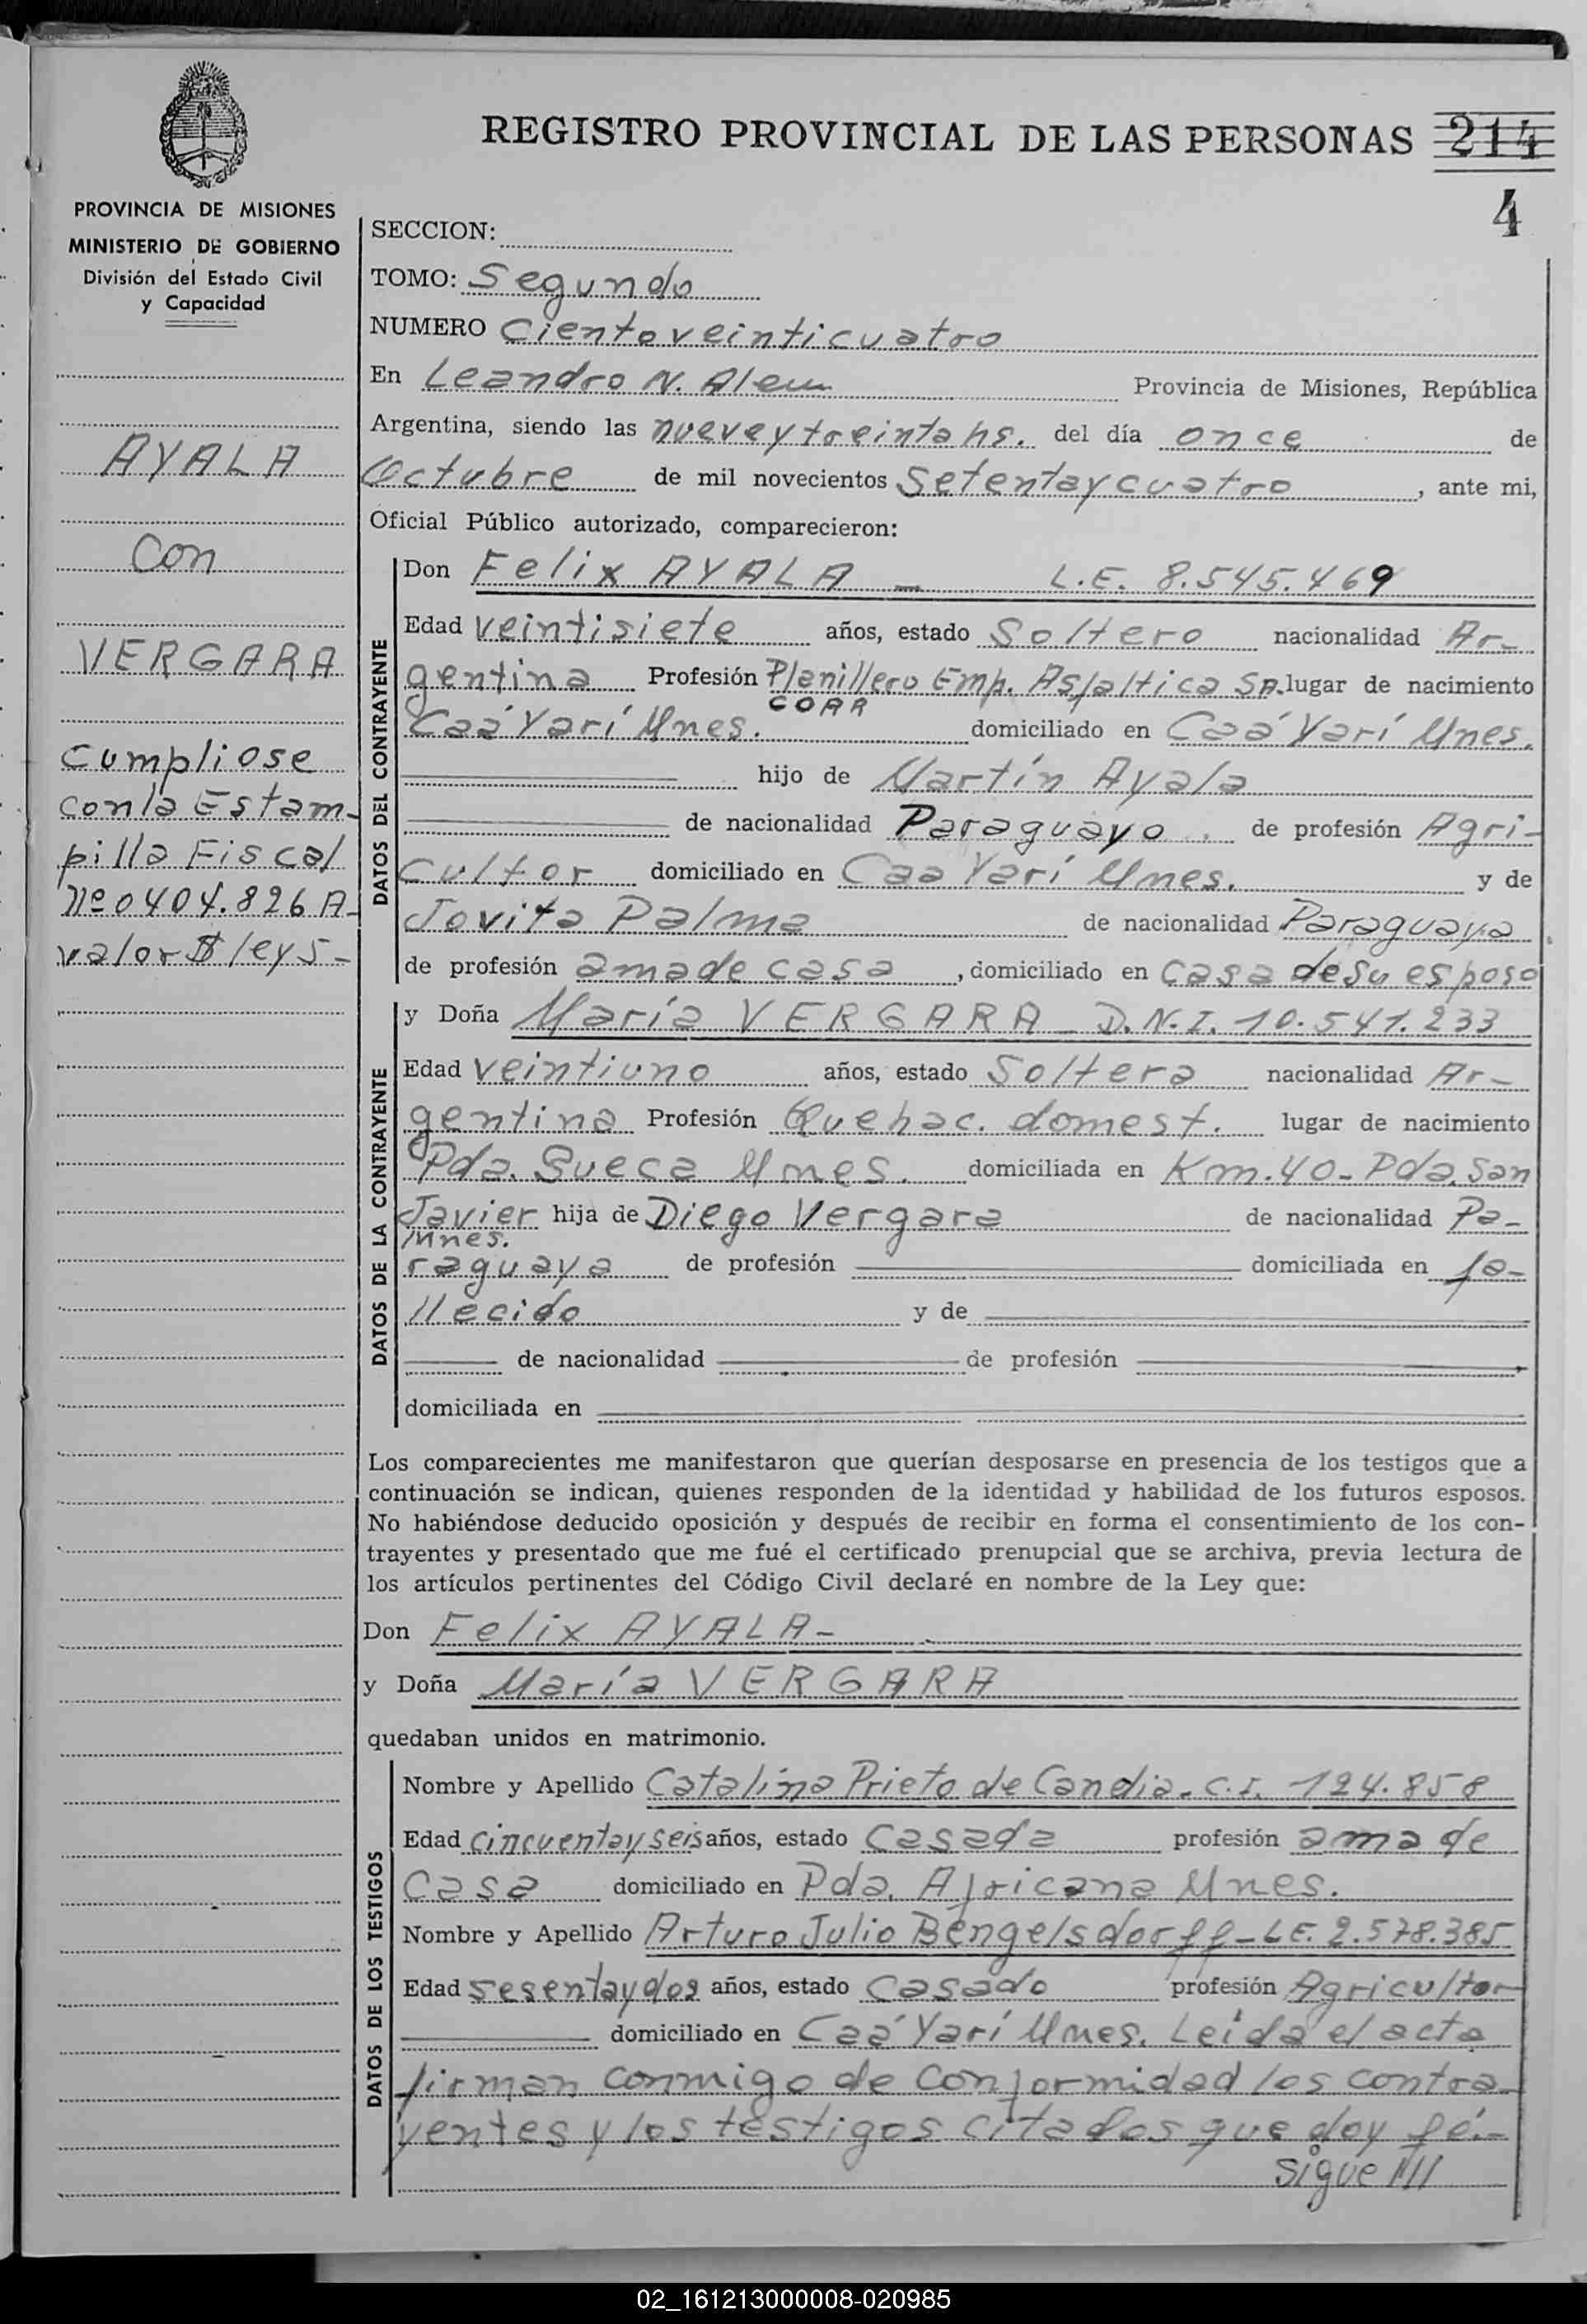 REGISTRO PROVINCIAL DE LAS PERSONAS 214
4
PROVINCIA DE MISIONES
MINISTERIO DE GOBIERNO
División del Estado Civil
y Capacidad
AYALA
con
VERGARA
Cumpliose
con la Estam-
pilla Fiscal
Nº 0404.826 A-
valor $ ley 5-
SECCION:
TOMO: Segundo
NUMERO Ciento veinticuatro
En Leandro N. Alem Provincia de Misiones, República
Argentina, siendo las nueve y treinta hs. del día once de
Octubre de mil novecientos Setenta y cuatro, ante mi,
Oficial Público autorizado, comparecieron:
DATOS DEL CONTRAYENTE
Don Felix AYALA — L.E. 8.545.469
Edad veintisiete años, estado Soltero nacionalidad Ar-
gentina Profesión Planillero Emp. Asfaltica SA. lugar de nacimiento
COAR
Caá Yarí Mnes. domiciliado en Caá Yarí Mnes.
hijo de Martín Ayala
de nacionalidad Paraguayo de profesión Agri-
cultor domiciliado en Caa Yarí Mnes. y de
Jovita Palma de nacionalidad Paraguaya
de profesión ama de casa, domiciliado en casa de su esposo
DATOS DE LA CONTRAYENTE
y Doña María VERGARA - D.N.I. 10.541.233
Edad veintiuno años, estado Soltera nacionalidad Ar-
gentina Profesión Quehac. domest. lugar de nacimiento
Pda. Sueca Mnes. domiciliada en Km. 40 - Pda. San
Javier hija de Diego Vergara de nacionalidad Pa-
Mnes.
raguaya de profesión domiciliada en fa-
llecido y de
de nacionalidad de profesión
domiciliada en
Los comparecientes me manifestaron que querían desposarse en presencia de los testigos que a
continuación se indican, quienes responden de la identidad y habilidad de los futuros esposos.
No habiéndose deducido oposición y después de recibir en forma el consentimiento de los con-
trayentes y presentado que me fué el certificado prenupcial que se archiva, previa lectura de
los artículos pertinentes del Código Civil declaré en nombre de la Ley que:
Don Felix AYALA-
y Doña María VERGARA
quedaban unidos en matrimonio.
DATOS DE LOS TESTIGOS
Nombre y Apellido Catalina Prieto de Candia. C.I. 124.858
Edad cincuenta y seis años, estado Casada profesión ama de
Casa domiciliado en Pda. Africana Mnes.
Nombre y Apellido Arturo Julio Bengelsdorff - L.E. 2.578.385
Edad sesenta y dos años, estado Casado profesión Agricultor
domiciliado en Caá Yarí Mnes. Leida el acta
firman conmigo de conformidad los contra-
yentes y los testigos citados que doy fé.-
sigue ///
02_161213000008-020985